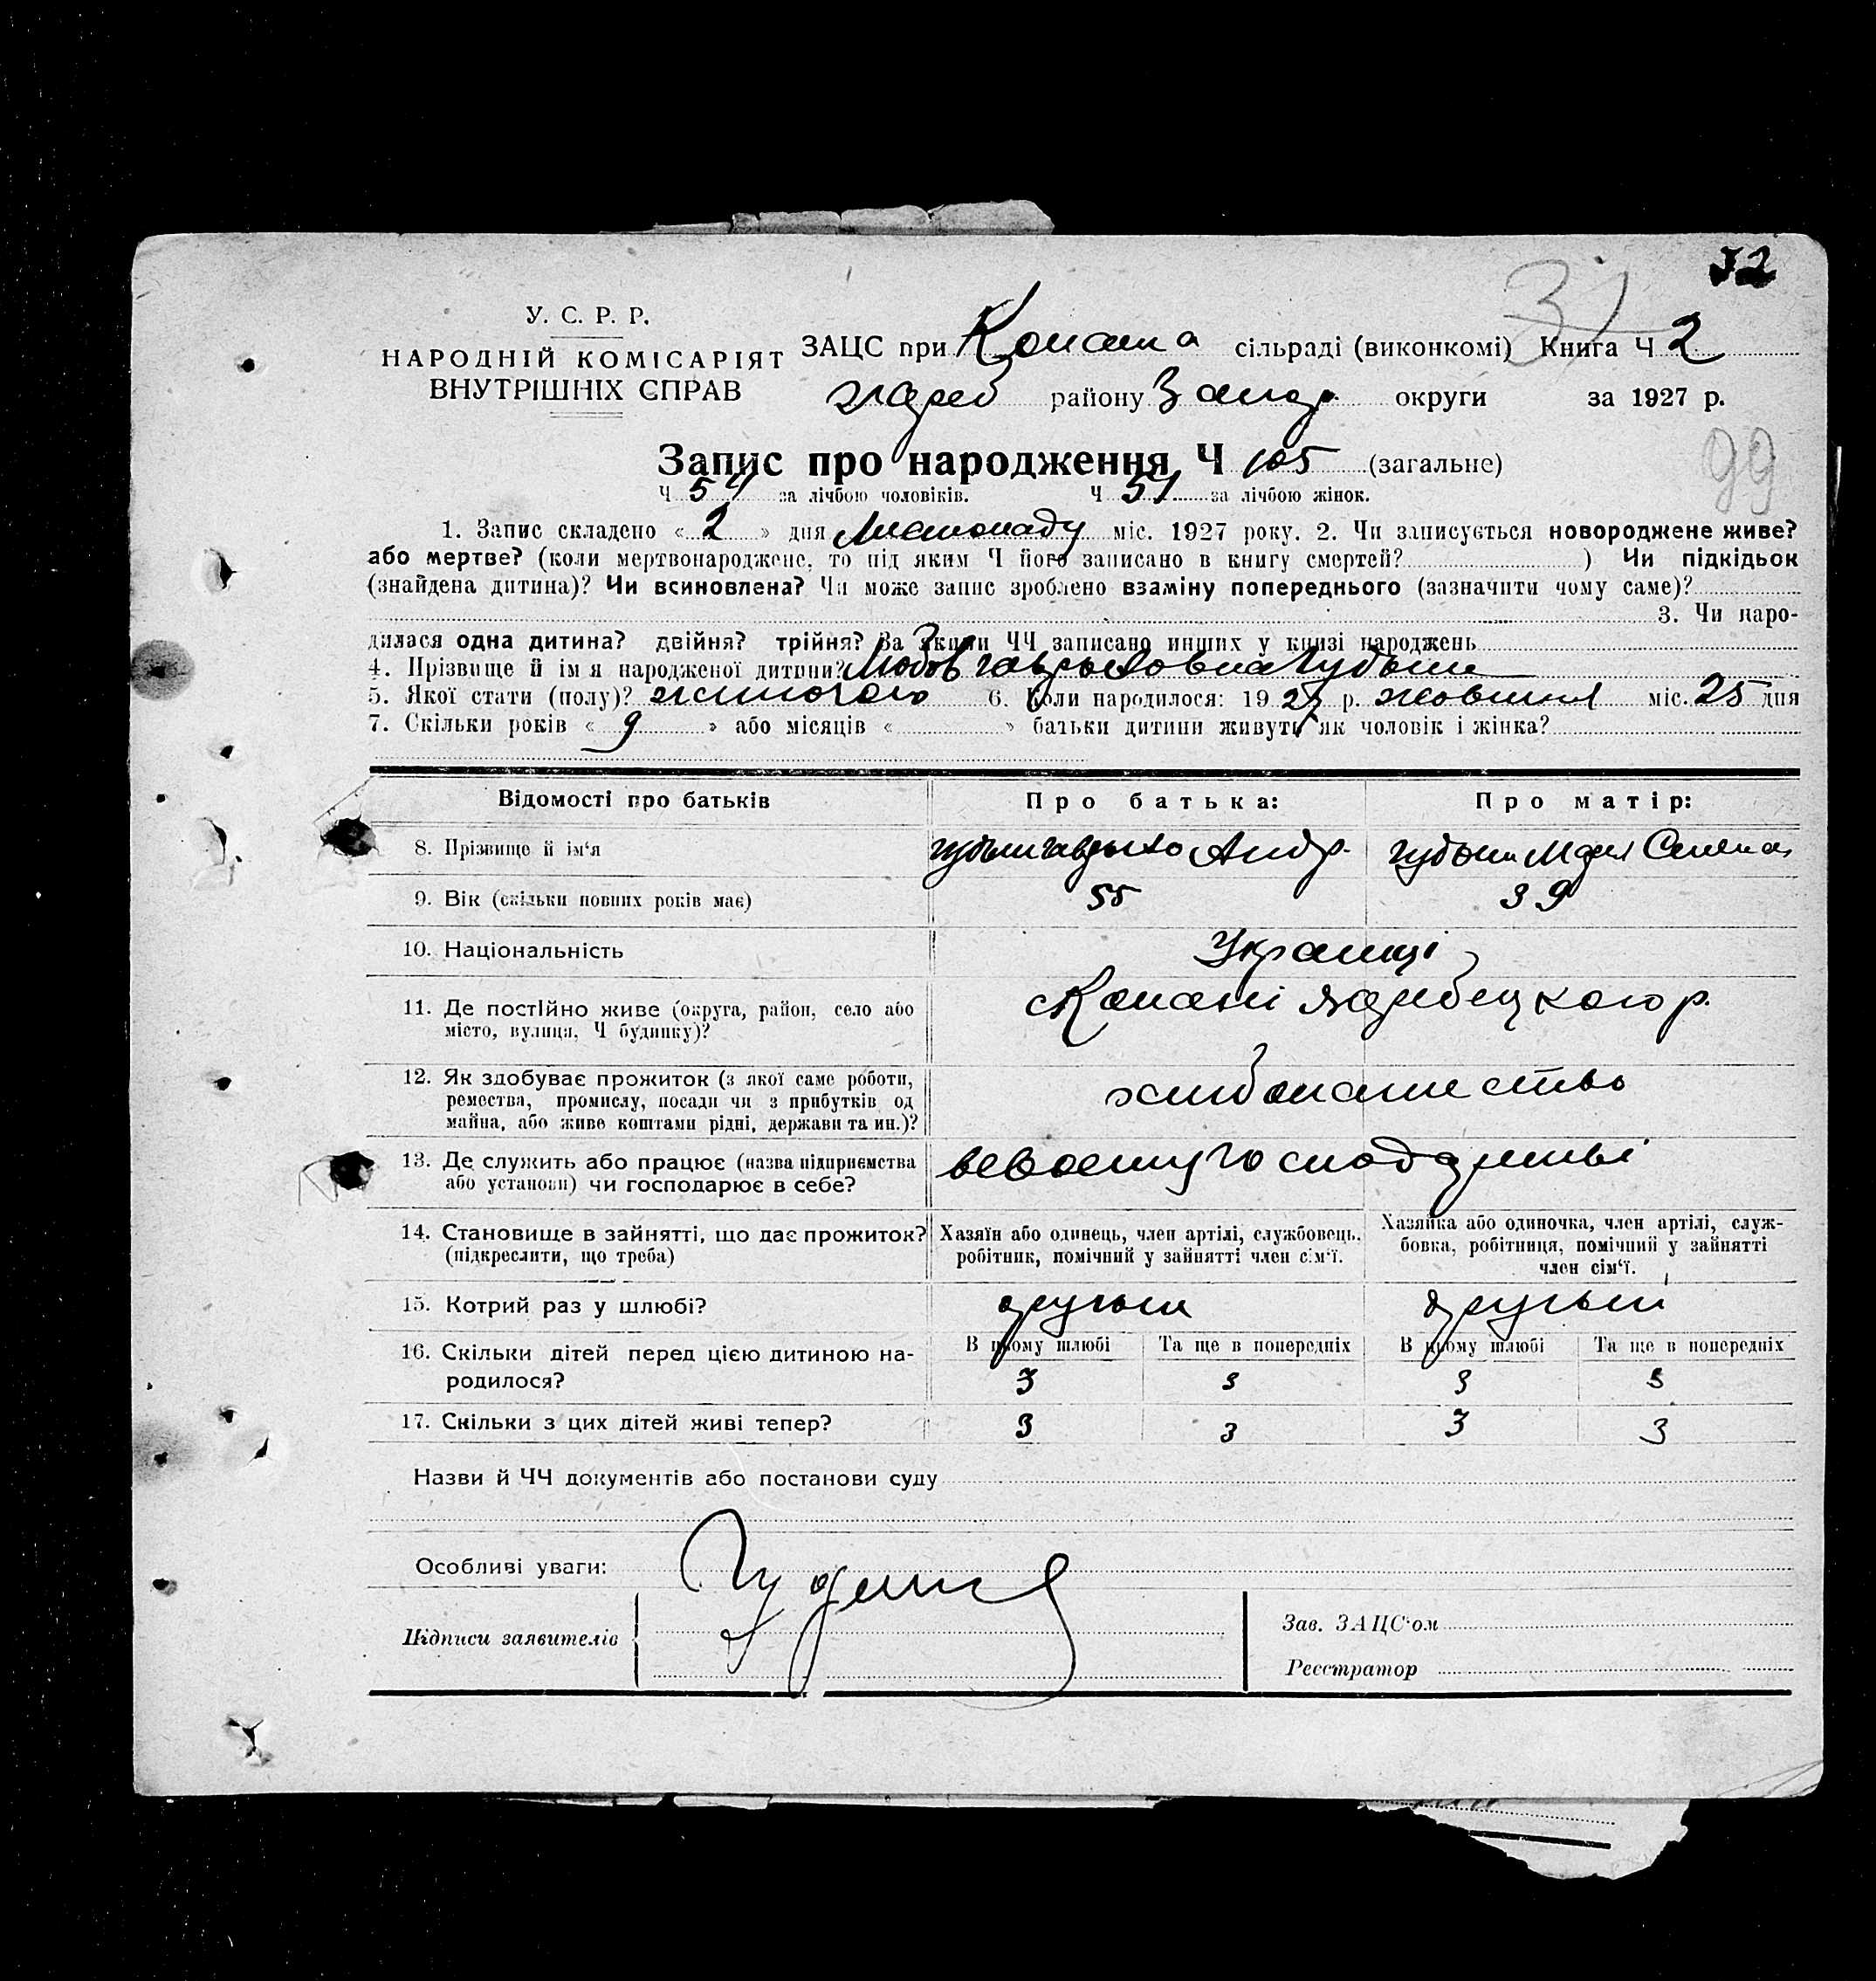 32
31
У. С. Р. Р.
НАРОДНІЙ КОМІСАРІЯТ
ВНУТРІШНІХ СПРАВ
ЗАЦС при Копани сільраді (виконкомі) Книга Ч 2
жереб району Запор. округи за 1927 р.
99
Запис про народження Ч 105 (загальне)
Ч 54 за лічбою чоловіків. Ч 51 за лічбою жінок.
1. Запис складено « 2 » дня Листопаду міс. 1927 року. 2. Чи записується новороджене живе?
або мертве? (коли мертвонароджене, то під яким Ч його записано в книгу смертей? ) Чи підкідьок
(знайдена дитина)? Чи всиновлена? Чи може запис зроблено взаміну попереднього (зазначити чому саме)?
3. Чи наро-
дилася одна дитина? двійня? трійня? За якими ЧЧ записано инших у книзі народжень
4. Прізвище й ім я народженої дитини? Любов Гаврыловна
5. Якої стати (полу)? жиночого 6. Коли народилося: 1927 р. жовтня міс. 25 дня
7. Скільки років « 9 » або місяців « » батьки дитини живуть як чоловік і жінка?
Відомості про батьків
Про батька:
Про матір:
8. Прізвище й ім'я Гаврыло Андр.
9. Вік (скільки повних років має) 55 39
10. Національність Українці
11. Де постійно живе (округа, район, село або
місто, вулиця, Ч будинку)?
с Копані жеребецкого р.
12. Як здобуває прожиток (з якої саме роботи,
ремества, промислу, посади чи з прибутків од
майна, або живе коштами рідні, держави та ин.)?
хлибопашество
13. Де служить або працює (назва підприємства
або установи) чи господарює в себе?
всвоему господарстві
14. Становище в зайнятті, що дає прожиток?
(підкреслити, що треба)
Хазяїн або одинець, член артілі, службовець,
робітник, помічний у зайнятті член сім'ї.
Хазяйка або одиночка, член артілі, служ-
бовка, робітниця, помічний у зайнятті
член сім'ї.
15. Котрий раз у шлюбі? другый другый
16. Скільки дітей перед цією дитиною на-
родилося?
В цьому шлюбі Та ще в попередніх В цьому шлюбі Та ще в попередніх
3 3 3 3
17. Скільки з цих дітей живі тепер? 3 3 3 3
Назви й ЧЧ документів або постанови суду
Особливі уваги:
Підписи заявителів
Зав. ЗАЦС'ом
Реєстратор